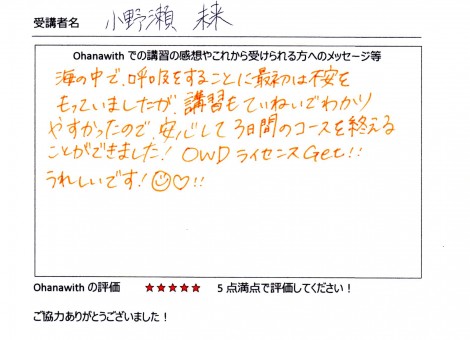 受講者名 小野瀬 未来
Ohanawith での講習の感想やこれから受けられる方へのメッセージ等
海の中で、呼吸をすることに最初は不安を
もっていましたが、講習もていねいでわかり
やすかったので、安心して3日間のコースを終える
ことができました! OWDライセンスGet!!
うれしいです!☺♡!!
Ohanawith の評価 ★★★★★ 5 点満点で評価してください!
ご協力ありがとうございました!